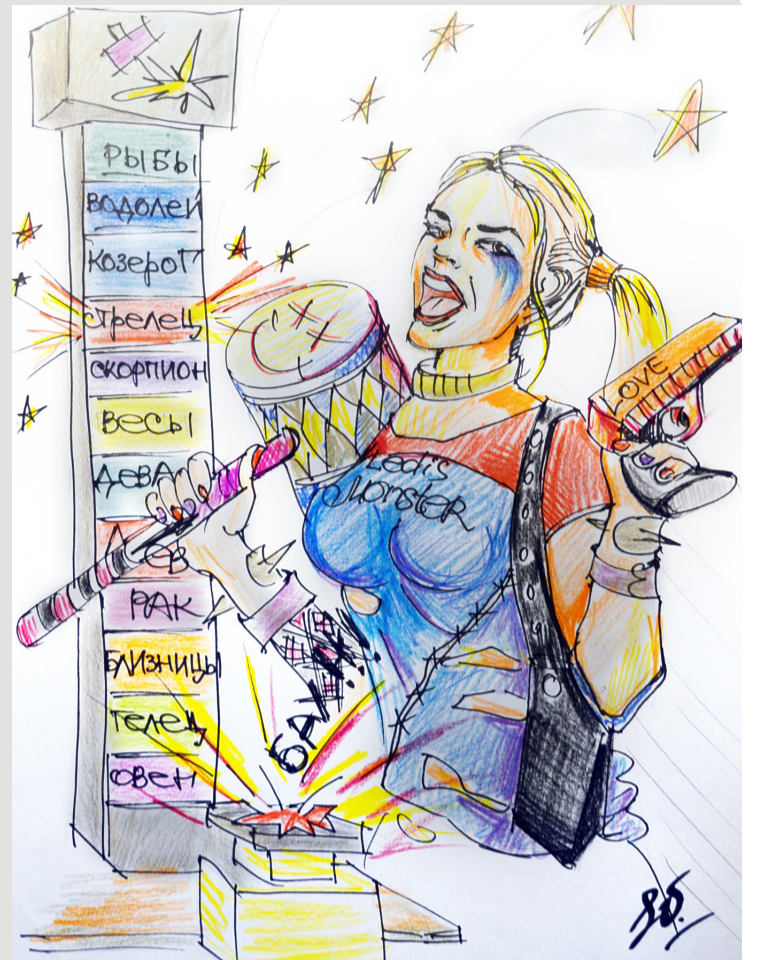 РЫБЫ
ВОДОЛЕЙ
КОЗЕРОГ
СТРЕЛЕЦ
СКОРПИОН
ВЕСЫ
ДЕВА
ЛЕВ
РАК
БЛИЗНИЦЫ
ТЕЛЕЦ
ОВЕН
LOVE
Ledis
Monster